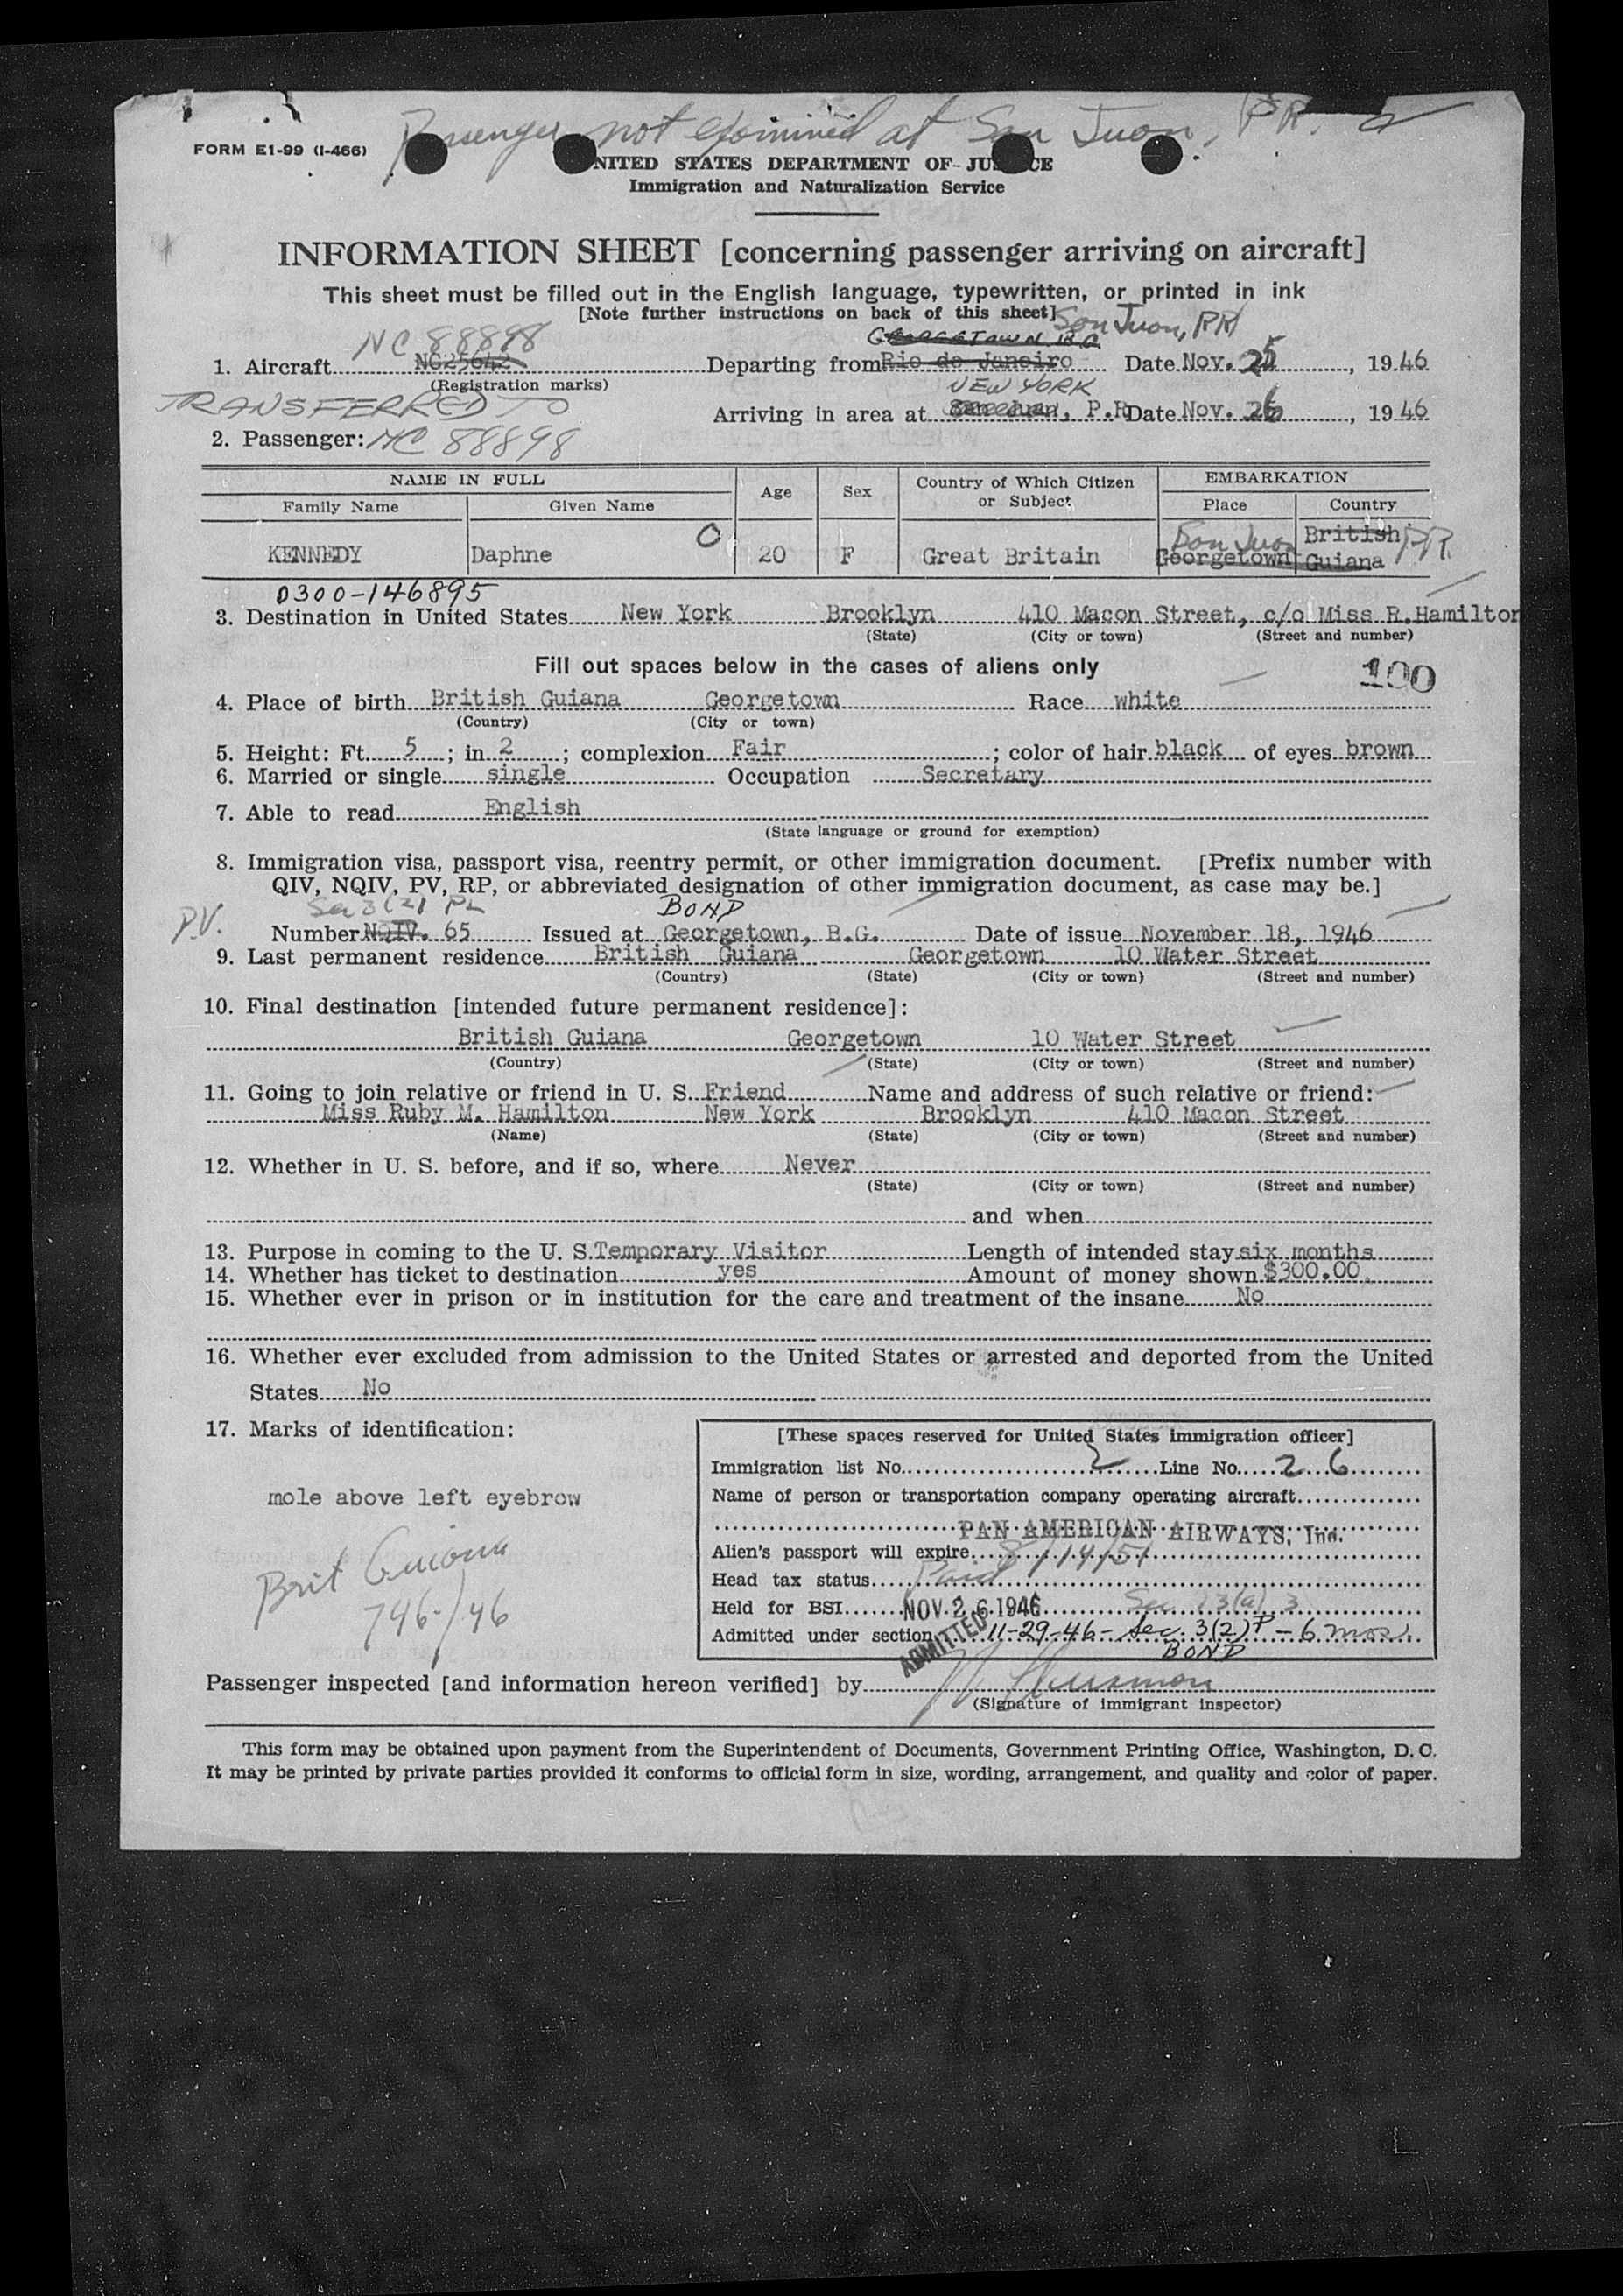 Passenger not examined at San Juan, P.R.
FORM E1-99 (I-466)
UNITED STATES DEPARTMENT OF JUSTICE
Immigration and Naturalization Service
INFORMATION SHEET [concerning passenger arriving on aircraft]
This sheet must be filled out in the English language, typewritten, or printed in ink
[Note further instructions on back of this sheet]
NC 88898 GEORGETOWN B.G. San Juan, PR
1. Aircraft NC25642 Departing from Rio de Janeiro Date Nov. 25, 1946
(Registration marks)
TRANSFERRED TO NEW YORK
Arriving in area at San Juan, P.R. Date Nov. 26, 1946
2. Passenger: NC 88898
NAME IN FULL Age Sex Country of Which Citizen or Subject EMBARKATION
Family Name Given Name Place Country
O San Juan British P.R.
KENNEDY Daphne 20 F Great Britain Georgetown Guiana
0300-146895
3. Destination in United States New York Brooklyn 410 Macon Street, c/o Miss R.Hamilton
(State) (City or town) (Street and number)
Fill out spaces below in the cases of aliens only
100
4. Place of birth British Guiana Georgetown Race white
(Country) (City or town)
5. Height: Ft. 5 ; in. 2 ; complexion Fair ; color of hair black of eyes brown
6. Married or single single Occupation Secretary
7. Able to read English
(State language or ground for exemption)
8. Immigration visa, passport visa, reentry permit, or other immigration document. [Prefix number with
QIV, NQIV, PV, RP, or abbreviated designation of other immigration document, as case may be.]
P.V. Sec 3(2) BOND
Number NQIV. 65 Issued at Georgetown, B.G. Date of issue November 18, 1946
9. Last permanent residence British Guiana Georgetown 10 Water Street
(Country) (State) (City or town) (Street and number)
10. Final destination [intended future permanent residence]:
British Guiana Georgetown 10 Water Street
(Country) (State) (City or town) (Street and number)
11. Going to join relative or friend in U. S. Friend Name and address of such relative or friend:
Miss Ruby M. Hamilton New York Brooklyn 410 Macon Street
(Name) (State) (City or town) (Street and number)
12. Whether in U. S. before, and if so, where Never
(State) (City or town) (Street and number)
and when
13. Purpose in coming to the U. S. Temporary Visitor Length of intended stay six months
14. Whether has ticket to destination yes Amount of money shown $300.00
15. Whether ever in prison or in institution for the care and treatment of the insane No
16. Whether ever excluded from admission to the United States or arrested and deported from the United
States No
17. Marks of identification:
mole above left eyebrow
Brit Guiana
746/46
[These spaces reserved for United States immigration officer]
Immigration list No. 2 Line No. 26
Name of person or transportation company operating aircraft
PAN AMERICAN AIRWAYS, Inc.
Alien's passport will expire 8/14/51
Head tax status Paid
Held for BSI NOV 26 1946 Sec 13(a) 3
Admitted under section ADMITTED 11-29-46 - Sec. 3(2)P - 6 mos.
BOND
Passenger inspected [and information hereon verified] by
(Signature of immigrant inspector)
This form may be obtained upon payment from the Superintendent of Documents, Government Printing Office, Washington, D. C.
It may be printed by private parties provided it conforms to official form in size, wording, arrangement, and quality and color of paper.